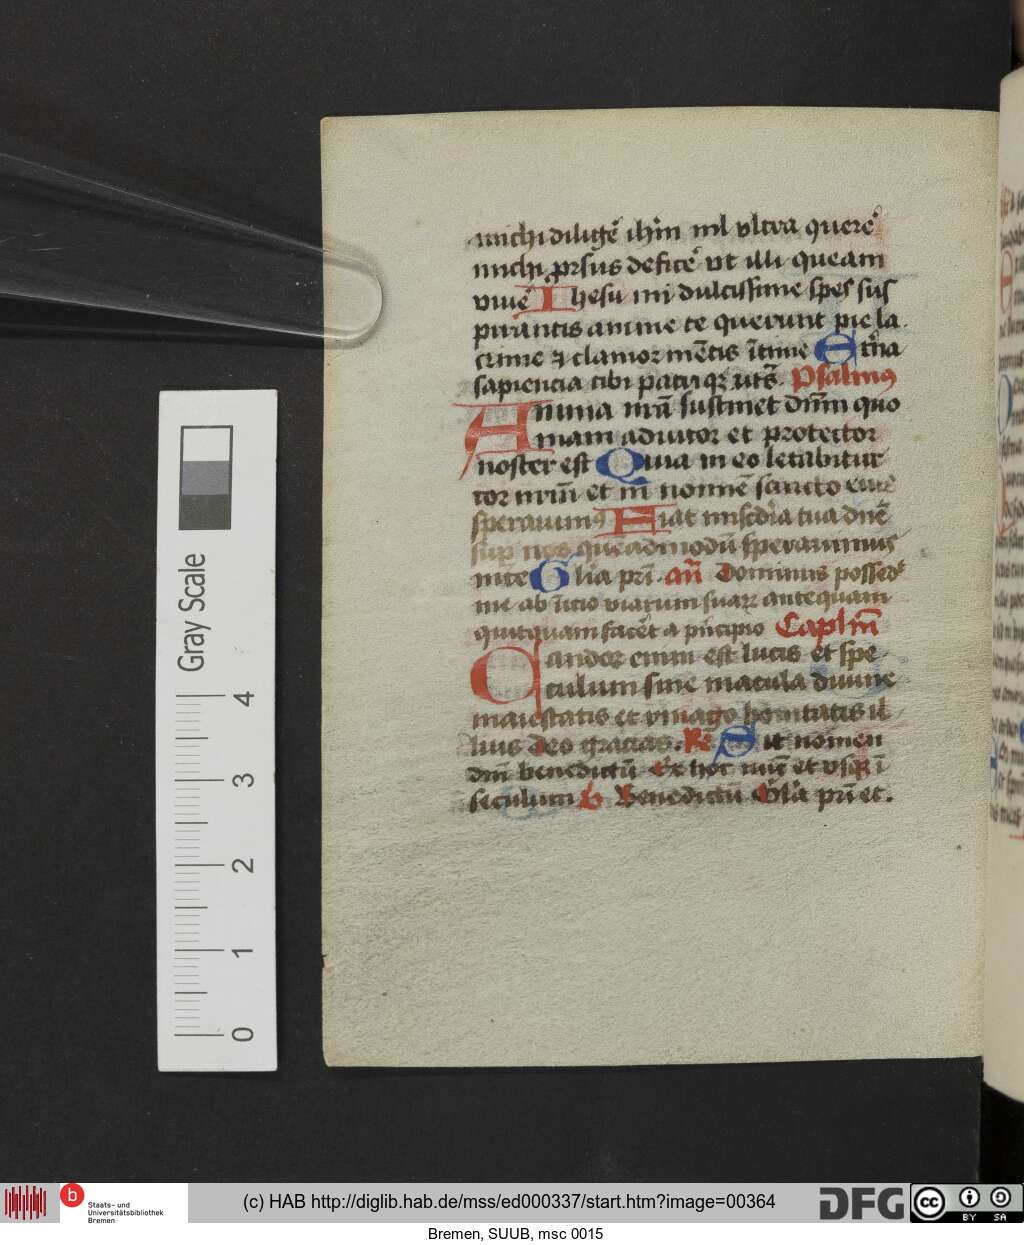 michi diligē ihm̄ nil vltra querē
michi prsus deficē vt illi queam
viuē Ihesu mi dulcissime spes sus
pirantis anime te querunt pie la
crime ⁊ clamor mētis ītime Et̄na
sapiencia tibi patriqꝫ Psalmus
Anima nrā sustinet dn̄m quo
niam adiutor et protector
noster est Quia in eo letabitur
cor nrm̄ et in nomīe sancto eius
sperauimꝰ Fiat mīsedia tua dn̄e
sup nos queadmodū sperauimus
in te Glia pri. an̄ Dominus possedꝭ
me ab īicio viarum suaꝝ antequam
quitquam facēt a pncipio Caplm̄
Candor enim est lucis et spe
culum sine macula diuine
maiestatis et ymago bonitatis il
lius deo gracias. R̄ Sit nomen
dni benedictū Ex hoc nūc et vsqꝫ ī
seculum Benedictū Glia pri et.
Gray Scale
0 1 2 3 4
b
Staats- und
Universitätsbibliothek
Bremen
(c) HAB http://diglib.hab.de/mss/ed000337/start.htm?image=00364
DFG
cc BY SA
Bremen, SUUB, msc 0015